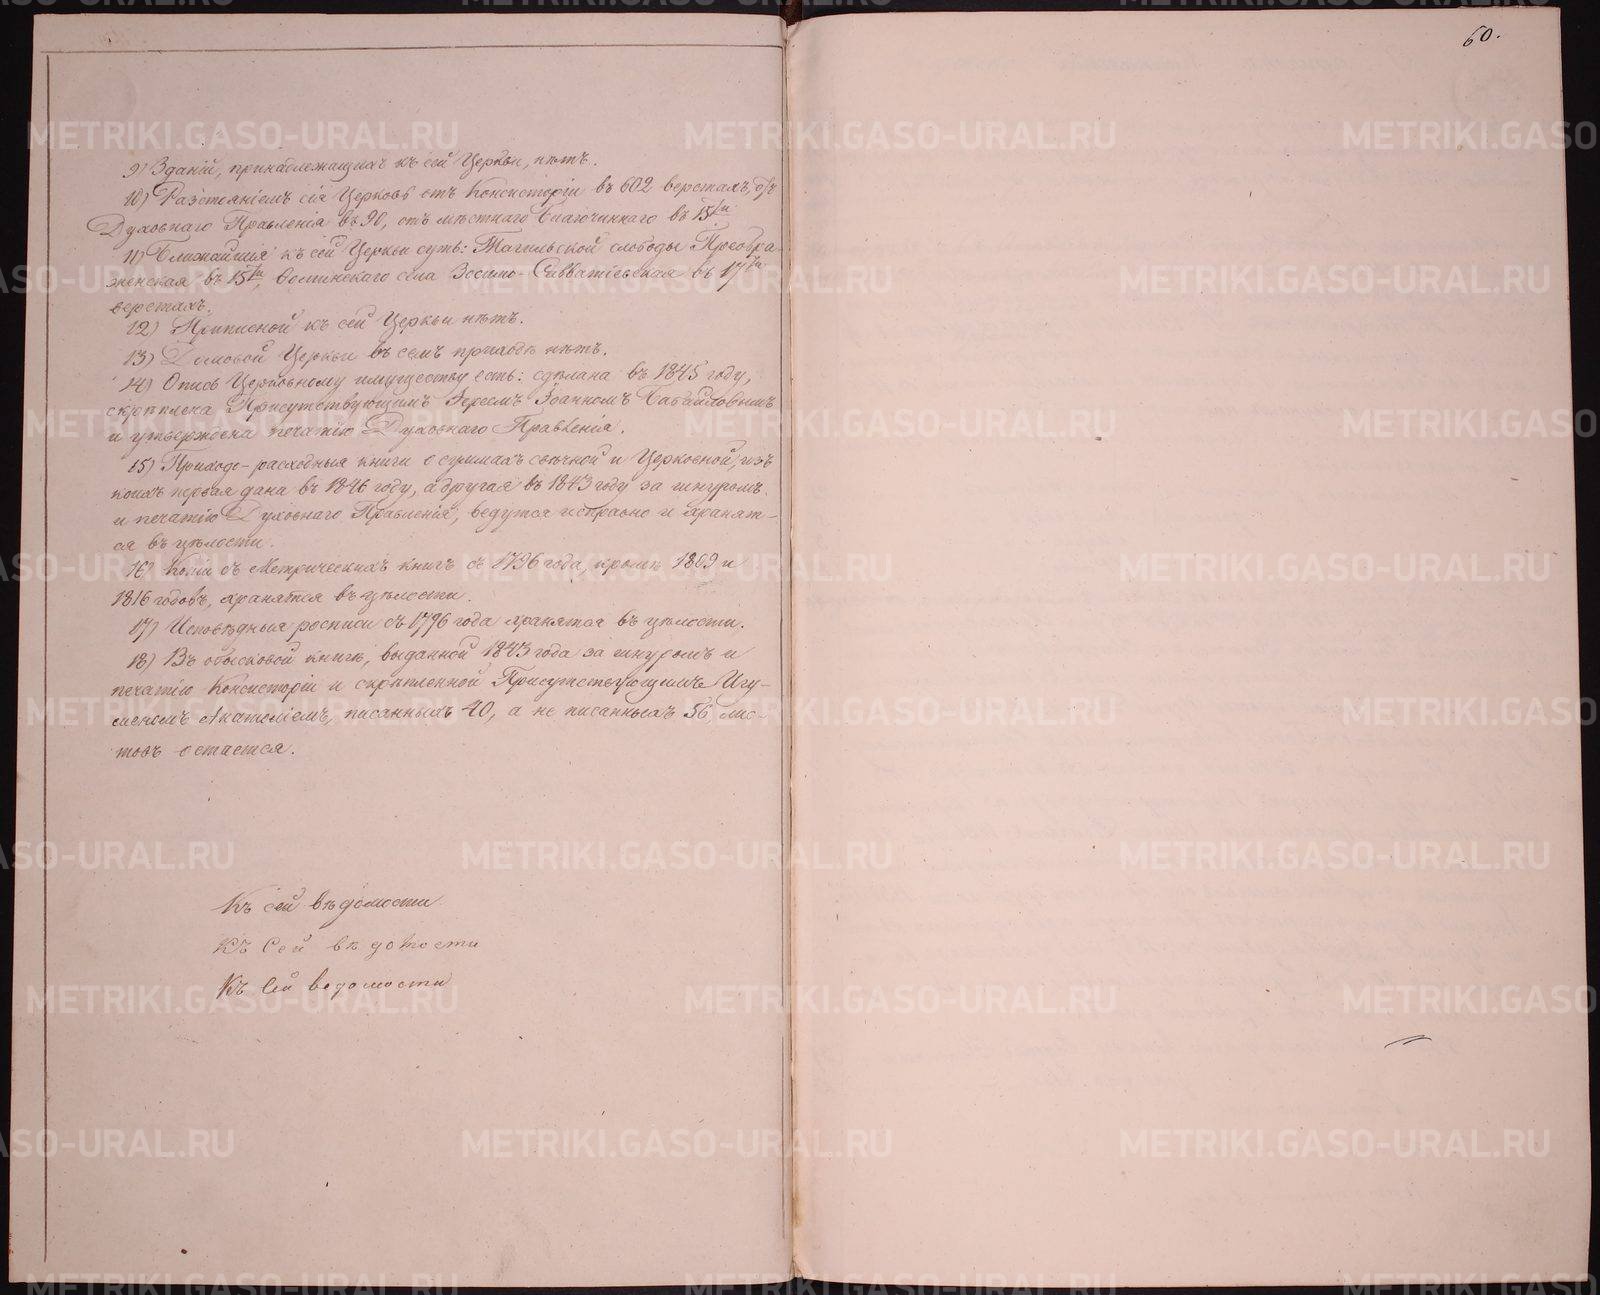 60.
9) Зданій, принадлежащихъ къ сей Церкви, нѣтъ.
10) Разстояніемъ сія Церковь отъ Консисторіи въ 602 верстахъ, отъ
Духовнаго Правленія въ 90, отъ мѣстнаго Благочиннаго въ 15ти.
11) Ближайшія къ сей Церкви суть: Тагильской слободы Преобра-
женская въ 15ти, Фоминскаго села Зосимо-Савватіевская въ 17ти
верстахъ.
12) Приписной къ сей Церкви нѣтъ.
13) Домовой Церкви въ семъ приходѣ нѣтъ.
14) Опись Церковному имуществу есть: сдѣлана въ 1845 году,
скрѣплена Присутствующимъ Іереемъ Іоанномъ
и утверждена печатію Духовнаго Правленія.
15) Приходо-расходныя книги о суммахъ свѣчной и Церковной, изъ
коихъ первая дана въ 1846 году, а другая въ 1843 году за шнуромъ
и печатію Духовнаго Правленія, ведутся исправно и хранят-
ся въ цѣлости.
16) Копіи съ Метрическихъ книгъ съ 1796 года, кромѣ 1809 и
1816 годовъ, хранятся въ цѣлости.
17) Исповѣдныя росписи съ 1796 года хранятся въ цѣлости.
18) Въ обысковой книгѣ, выданной 1843 года за шнуромъ и
печатію Консисторіи и скрѣпленной Присутствующимъ Игу-
меномъ писанныхъ 40, а не писанныхъ 56 лис-
товъ остается.
Къ сей вѣдомости
Къ Сей вѣдомости
Къ Сей ведомости
METRIKI.GASO-URAL.RU